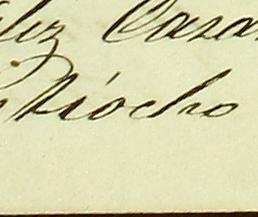 liz Casa
ntiocho